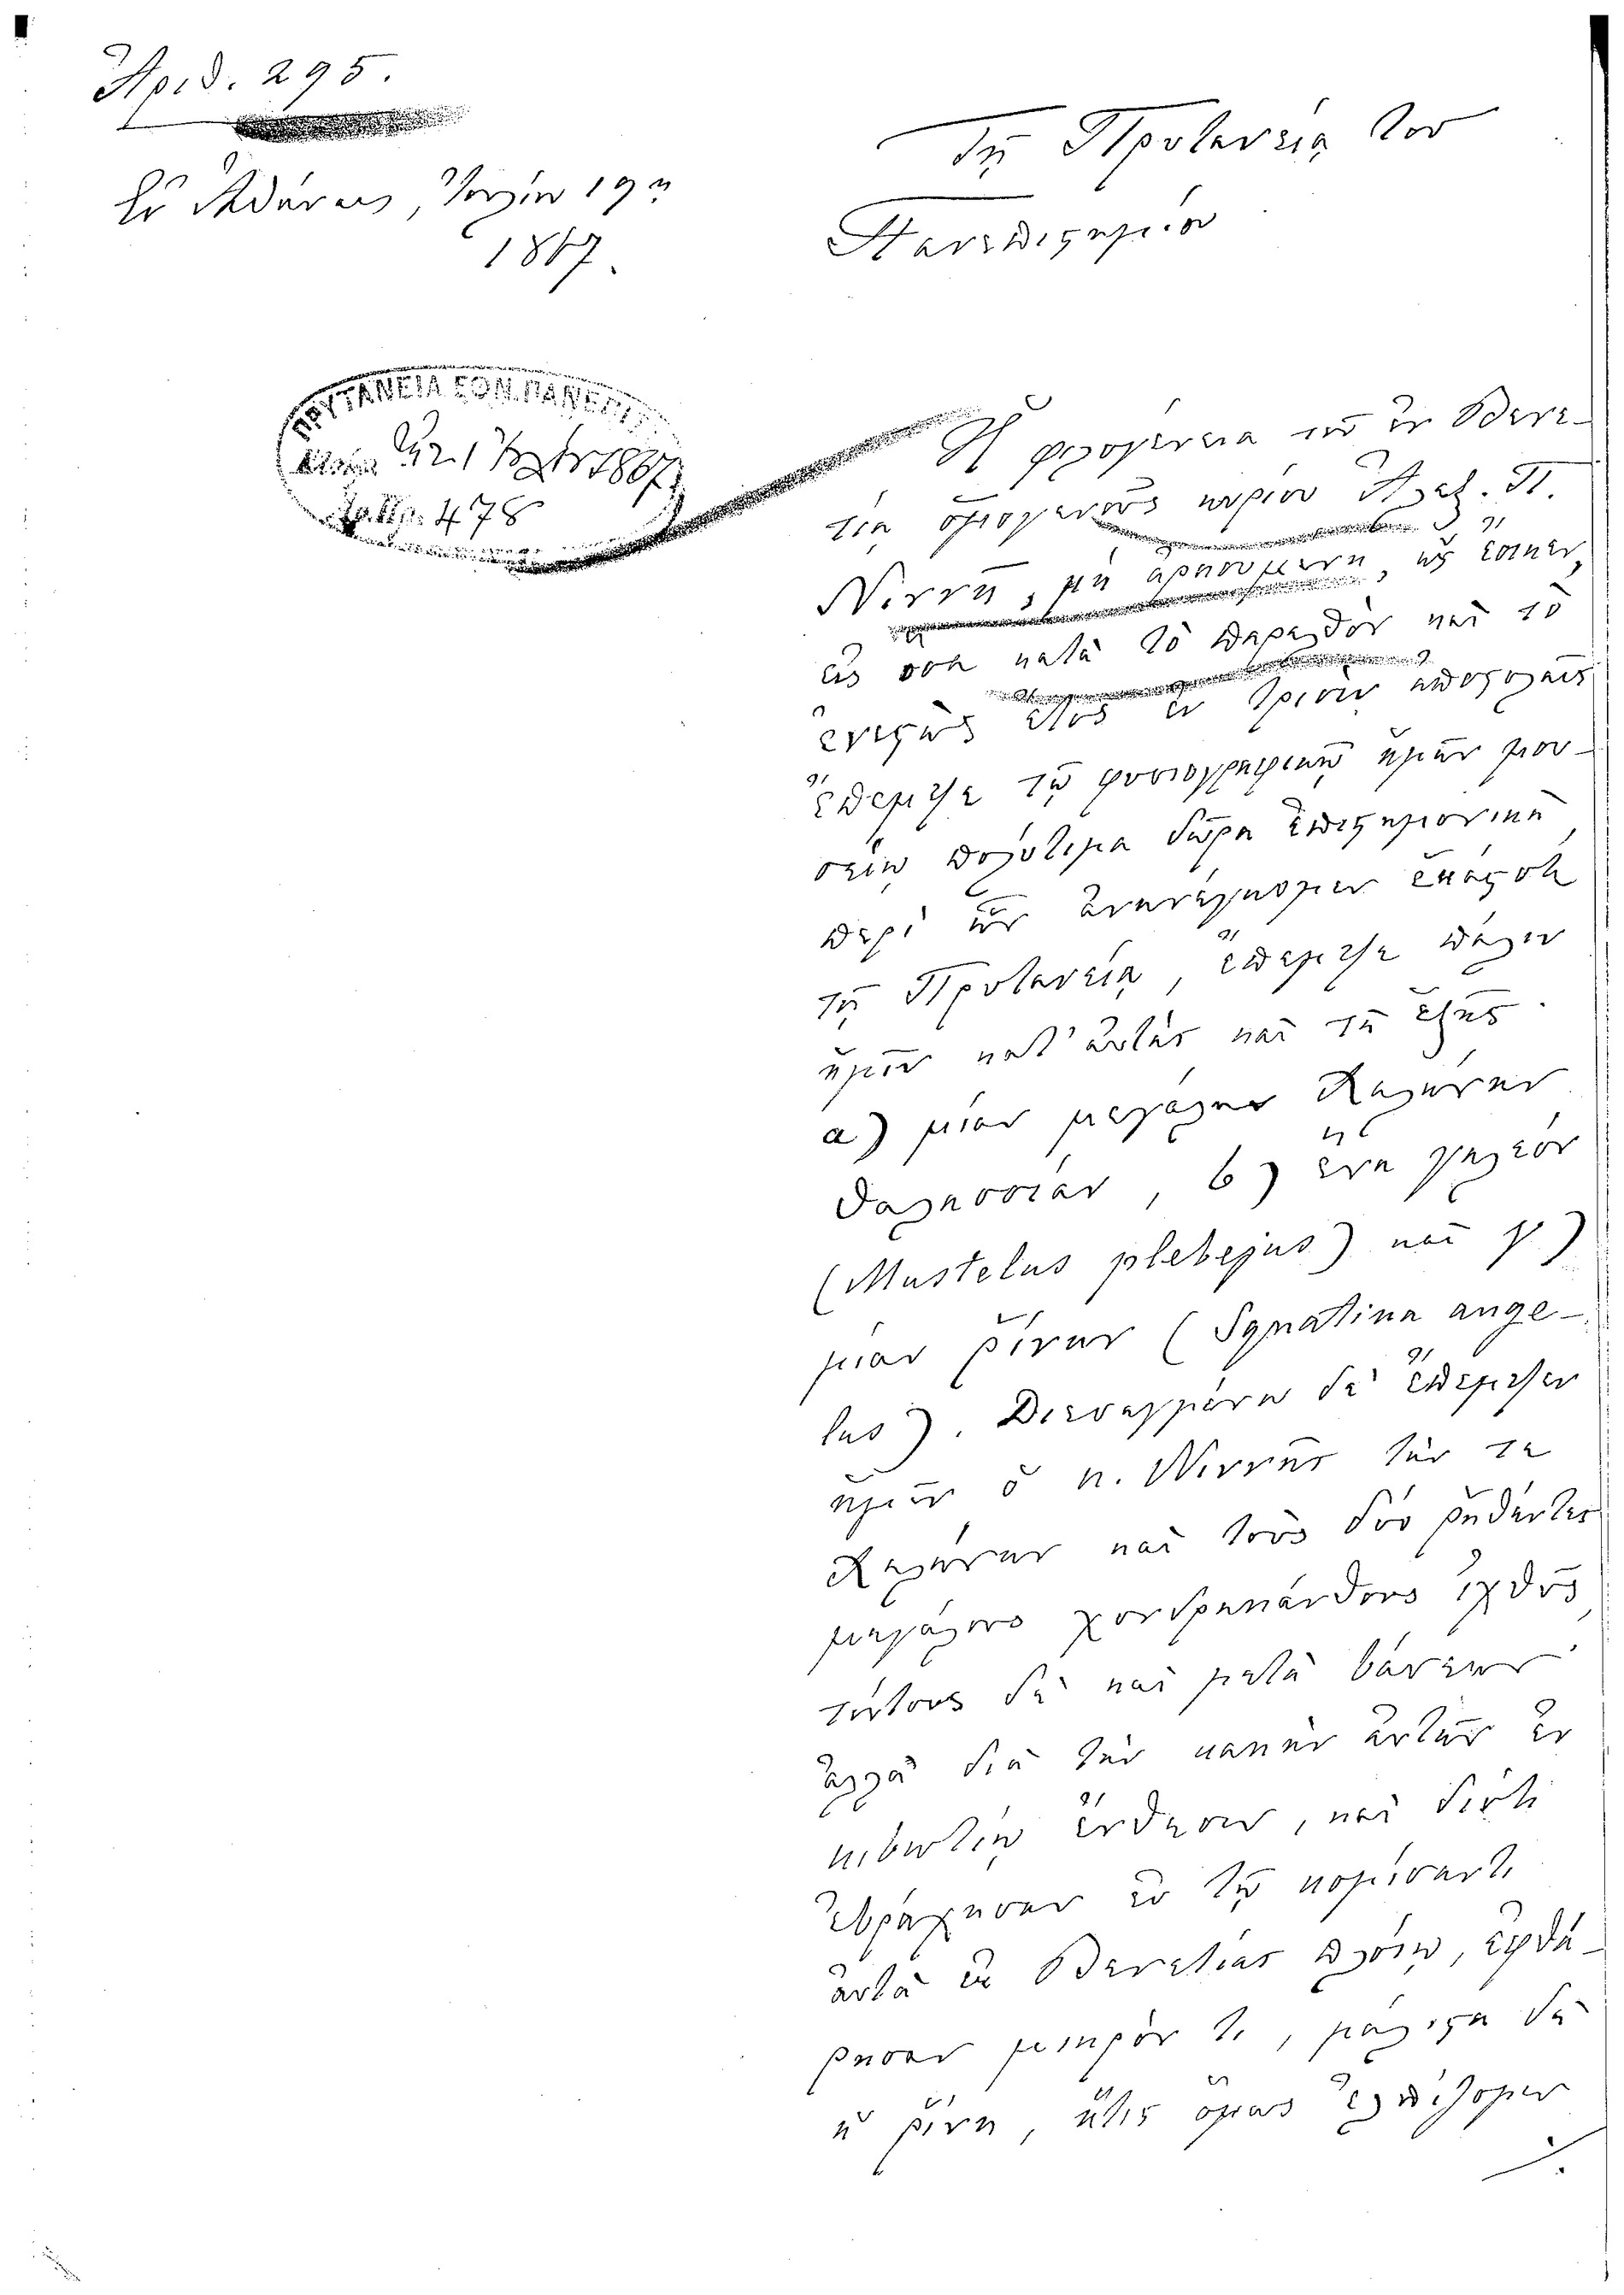 Ἀριθ. 295.
Ἐν Ἀθήναις, 19ῃ
1867.
Τῇ Πρυτανείᾳ του
Πανεπιστημίου
ΠΡΥΤΑΝΕΙΑ ΕΘΝ. ΠΑΝΕΠΙΣΤ
τῇ 21 1867
Ἀρ. Πρ. 478
Ἡ φιλογένεια τοῦ ἐν Βενε-
τίᾳ ὁμογενοῦς κυρίου Ἀλεξ. Π.
Νίννη, μὴ ἀρκουμένη, ὡς ἔοικεν,
εἰς ὅσα κατὰ τὸ παρελθὸν καὶ τὸ
ἐνεστὼς ἔτος ἐν τρισὶν ἀποστολαῖς
ἔπεμψε τῷ φυσιογραφικῷ ἡμῶν μου-
σείῳ πολύτιμα δῶρα ἐπιστημονικὰ,
περὶ ὧν ἀνηνέγκομεν ἑκάστοτε
τῇ Πρυτανείᾳ, ἔπεμψε πάλιν
ἡμῖν κατ' αὐτὰς καὶ τὰ ἑξῆς·
α) μίαν μεγάλην Χελώνην
θαλασσίαν, β) ἕνα γαλεόν
(Mustelus plebejus) καὶ γ)
μίαν ῥίνην (Squatina ange-
lus). Διεσαγμένα δὲ ἔπεμψεν
ἡμῖν ὁ κ. Νίννης τήν τε
Χελώνην καὶ τοὺς δύο ῥηθέντας
μεγάλους χονδρακάνθους ἰχθῦς,
τούτους δὲ καὶ μετὰ βάσεων·
ἀλλὰ διὰ τὴν κακὴν αὐτῶν ἐν
κιβωτίῳ ἔνθεσιν, καὶ διότι
ἐβράχησαν ἐν τῷ κομίσαντι
αὐτὰ ἐκ Βενετίας πλοίῳ, ἐφθά-
ρησαν μικρόν τι, μάλιστα δὲ
ἡ ῥίνη, ἥτις ὅμως ἐλπίζομεν
./.